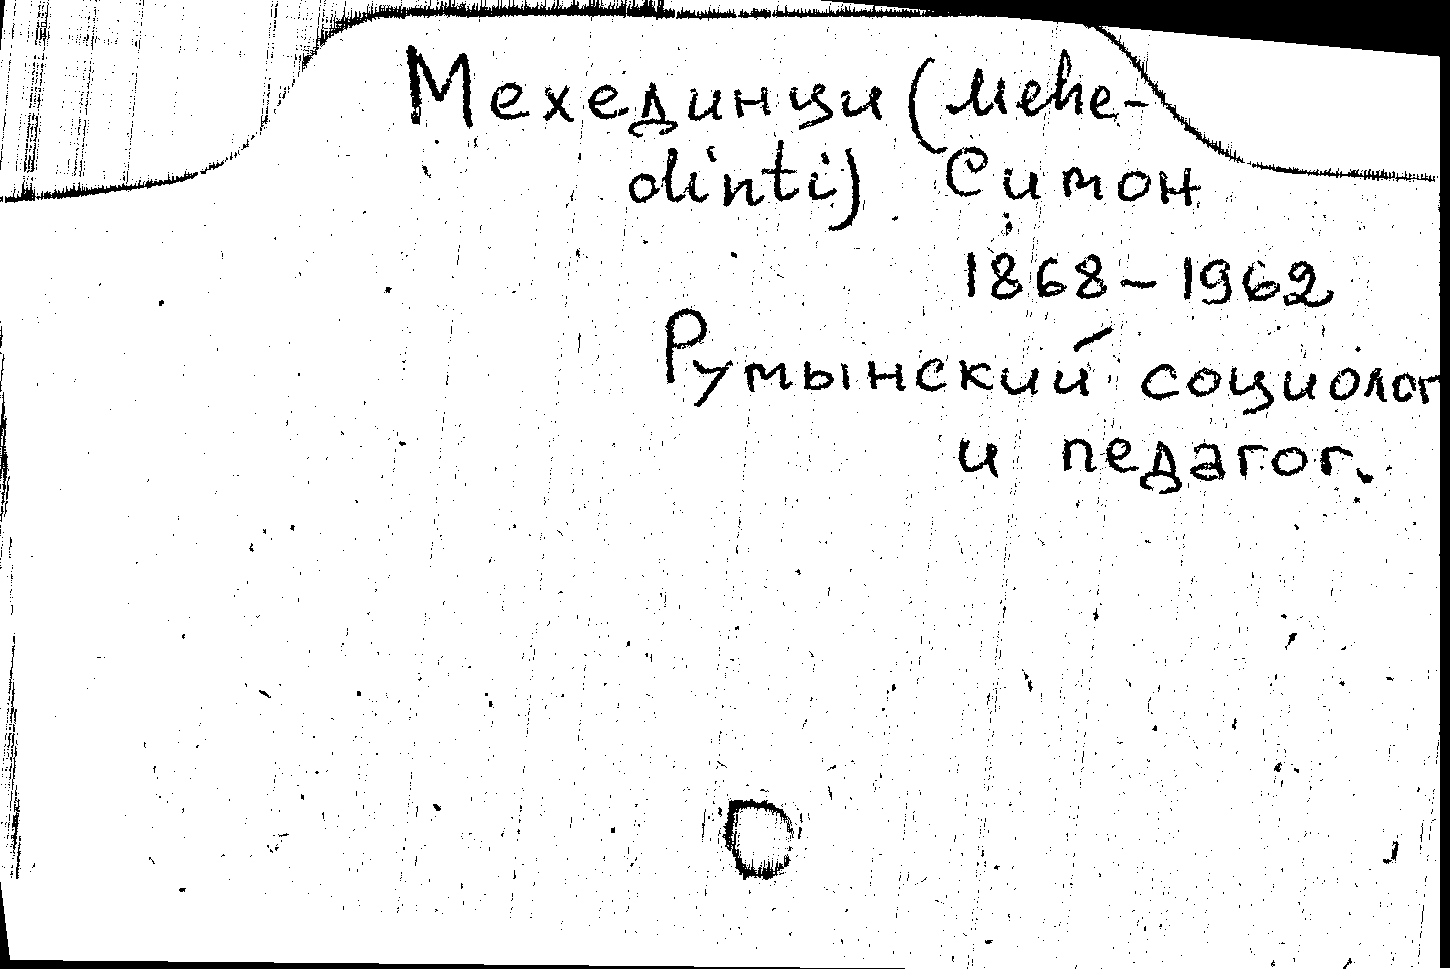 Мехединци (Mehe-
dinti) Симон
1868-1962
Румынский социолог
и педагог.